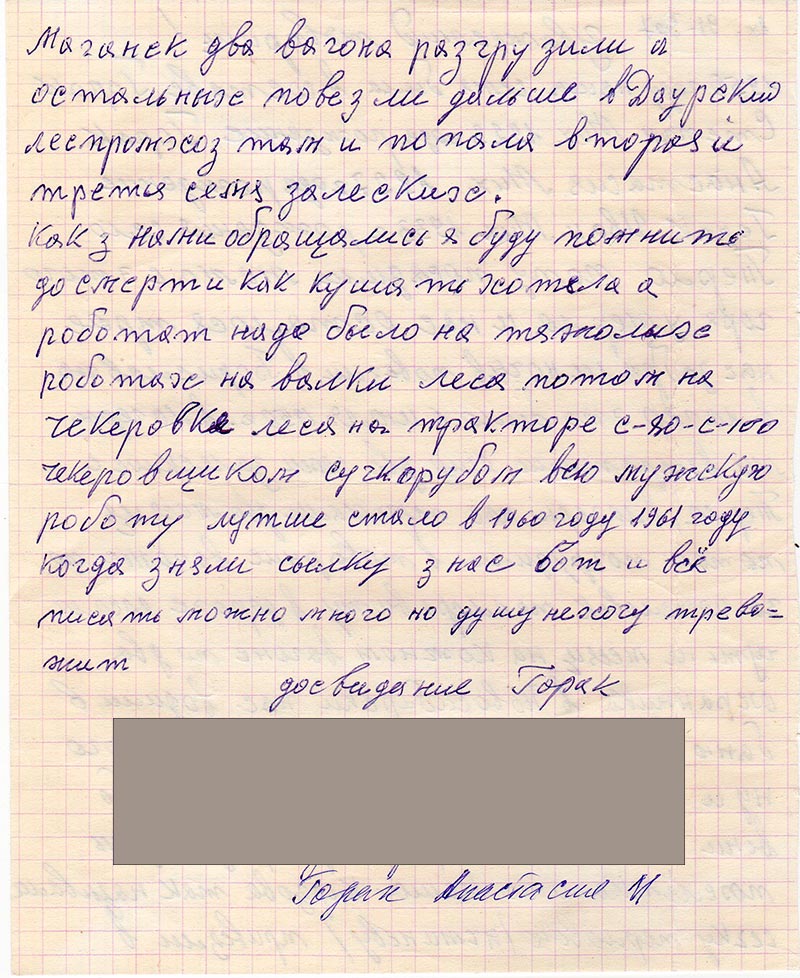 Маганск два вагона разгрузили а
остальных повезли дальше в Даурский
леспромхоз там и попала в торая и
третья семя залеских.
как з нами обращались я буду помнить
до смерти как кушать хотела а
роботат надо было на тяжолых
роботах на валки леса потом на
чекеровке леса на тракторе с-80-с-100
чекеровщиком сучкорубом всю мужскую
роботу лутше стало в 1960 году 1961 году
когда зняли сылку з нас вот и всё
писять можно много но душу нехочу трево=
жит
досвидание Горак
Горак Анастасия И